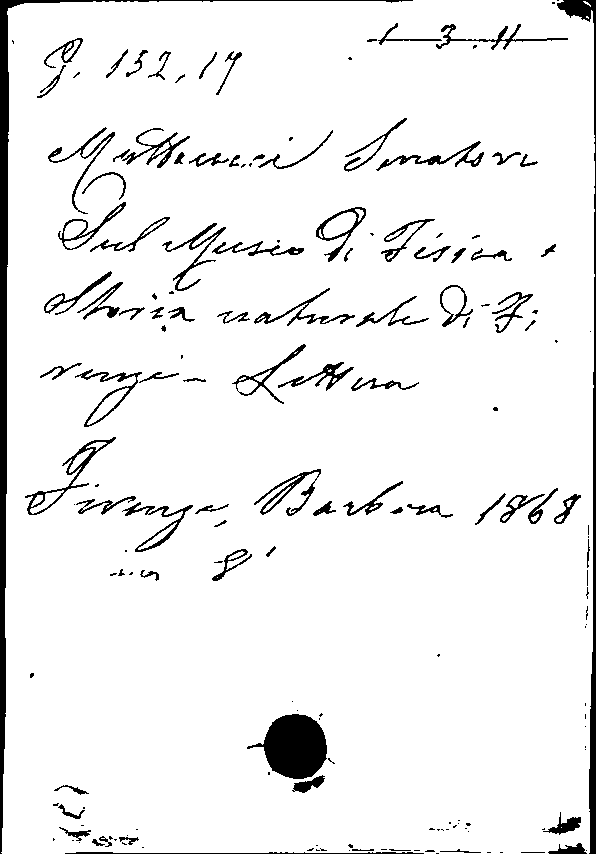 1 3.11
G. 132,17
Matteucci Senatore
Sul Museo di Fisica e
Storia naturale di Fi
renze - Lettera
Firenze, Barbèra 1868
in 8°